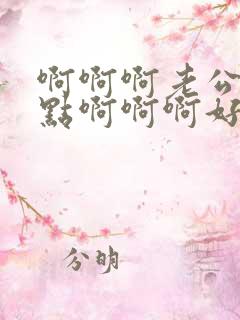 啊啊啊老公
點啊啊啊好
分明